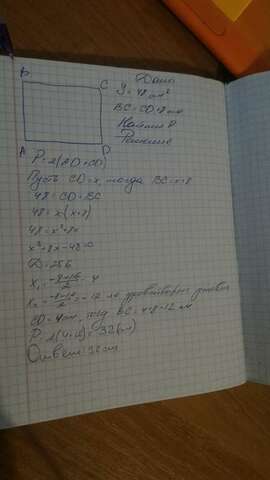 B
C
A
D
Дано
S=48 см²
BC=CD+8 см
Найти P
Решение
P=2(AD+CD)
Пусть CD=x, тогда BC=x+8
48=CD·BC
48=x(x+8)
48=x²+8x
x²+8x-48=0
D=256
x₁=(-8+16)/2=4
x₂=(-8-16)/2=-12 не условию
CD=4см, BC=4+8=12 см
P=2(4+12)=32(см)
Ответ: 32 см